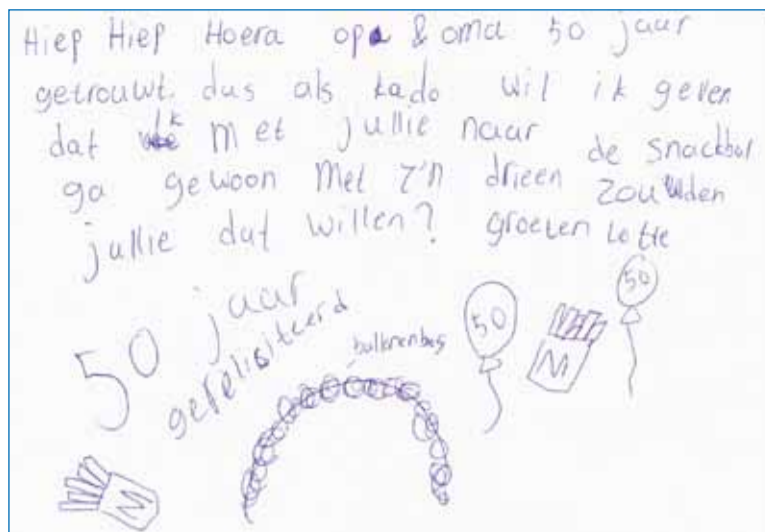 Hiep Hiep Hoera opa & oma 50 jaar
getrouwt. dus als kado wil ik geven
dat ik met jullie naar de snackbar
ga gewoon met z'n drieen zouden
jullie dat willen? groeten Lotte
50 jaar
gefelisiteerd
50
50
M
M